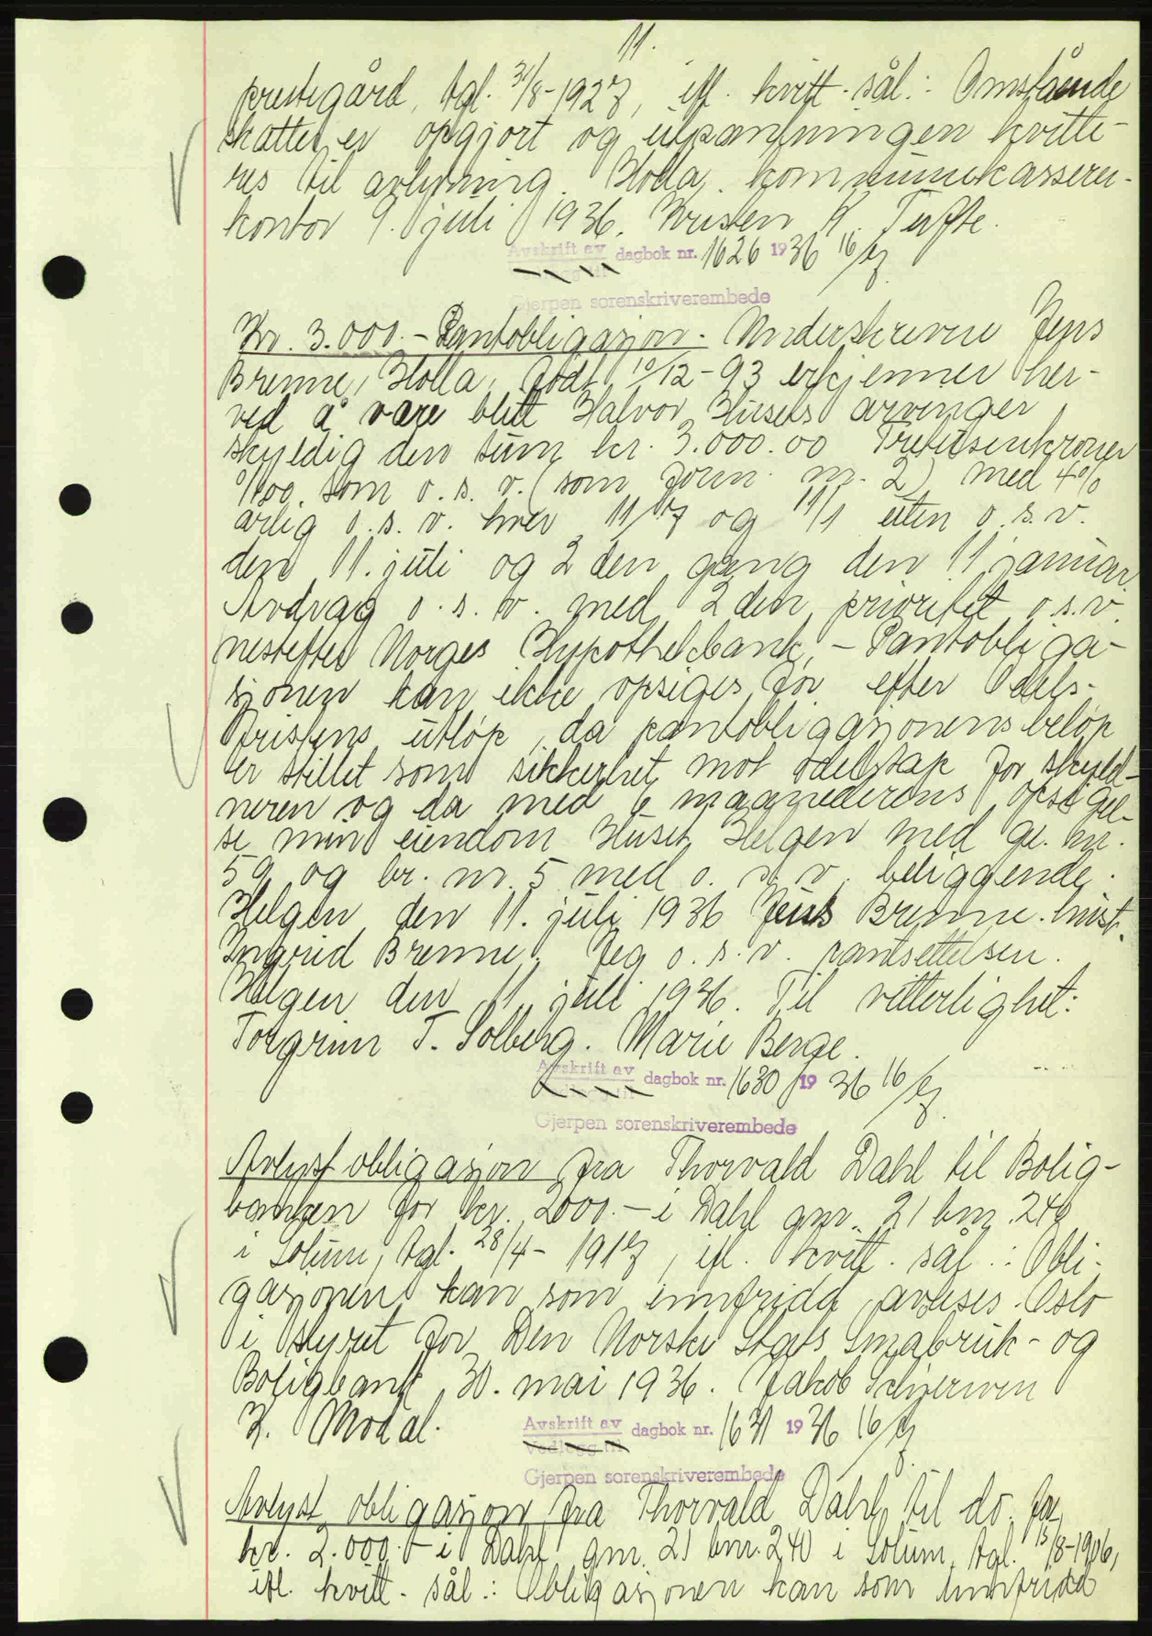 11.
prestegård, tgl. 31/8-1927, ifl. kvitt. sål.: Omstående
skatter er opgjort og utpantningen kvitte-
res til avlysning. Holla kommunekasserer-
kontor 9. juli 1936. Kristen K. Tufte.
Avskrift av dagbok nr. 1626 1936 16/7
Gjerpen sorenskriverembede
Kr. 3.000.- Pantobligasjon. Underskrevne Jens
Brenne, Holla, født 10/12-93 erkjenner her-
ved å være blitt Halvor Husets arvinger
skyldig den sum kr. 3.000.00 Tretusenkroner
0/100 som o.s.v. (som journ. nr. 2) med 4%
årlig o.s.v. hver 11/7 og 11/1 uten o.s.v.
den 11. juli og 2 den gang den 11 januar
Avdrag o.s.v. med 2 den prioritet o.s.v.
nestefter Norges Hypothekbank, - Pantobliga-
sjonen kan ikke opsiges før efter Odels-
fristens utløp, da pantobligasjonens beløp
er stillet som sikkerhet mot odelstap for skyld-
neren og da med 6 måneders opsigel-
se min eiendom Huset Helgen med g. nr.
59 og br. nr. 5 med o.s.v. beliggende.
Helgen den 11. juli 1936 Jens Brenne. hust.
Ingrid Brenne. Jeg o.s.v. pantsettelsen.
Helgen den 11 juli 1936. Til vitterlighet:
Torgrim T. Solberg. Marie Berge.
Avskrift av dagbok nr. 1630 1936 16/7
Gjerpen sorenskriverembede
Avlyst obligasjon fra Thorvald Dahl til Bolig-
banken for kr. 2000.- i Dahl gnr. 21 bnr. 240
i Solum, tgl. 28/4-1917, ifl. kvitt. sål.: Obli-
gasjonen kan som innfridd avlyses. Oslo
i styret for Den Norske Stats Småbruk- og
Boligbank, 30. mai 1936. Jakob Schjerven
K. Modal.
Avskrift av dagbok nr. 1631 1936 16/7
Gjerpen sorenskriverembede
Avlyst obligasjon fra Thorvald Dahl til do. for
kr. 2.000.- i Dahl gnr. 21 bnr. 240 i Solum, tgl. 15/8-1906,
ifl. kvitt. sål.: Obligasjonen kan som innfridd